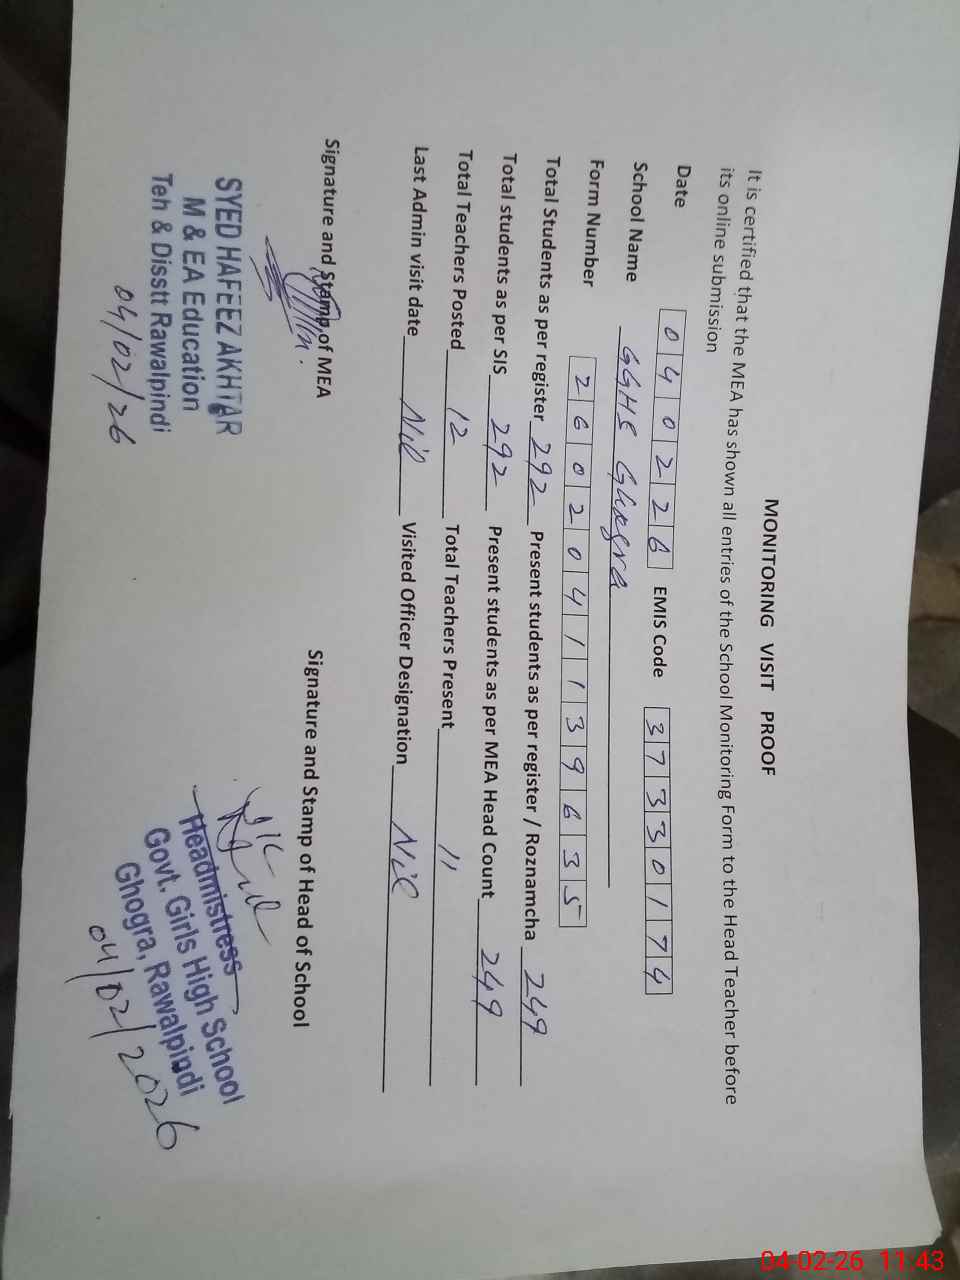 MONITORING VISIT PROOF
It is certified that the MEA has shown all entries of the School Monitoring Form to the Head Teacher before
its online submission
Date 040226 EMIS Code 37330174
School Name GGHS Ghogra
Form Number 2602041139635
Total Students as per register 292 Present students as per register / Roznamcha 249
Total students as per SIS 292 Present students as per MEA Head Count 249
Total Teachers Posted 12 Total Teachers Present 11
Last Admin visit date Nil Visited Officer Designation Nil
Signature and Stamp of MEA Signature and Stamp of Head of School
SYED HAFEEZ AKHTAR
M & EA Education
Teh & Disstt Rawalpindi
04/02/26
I/C
Headmistress
Govt. Girls High School
Ghogra, Rawalpindi
04/02/2026
04-02-26 11:43